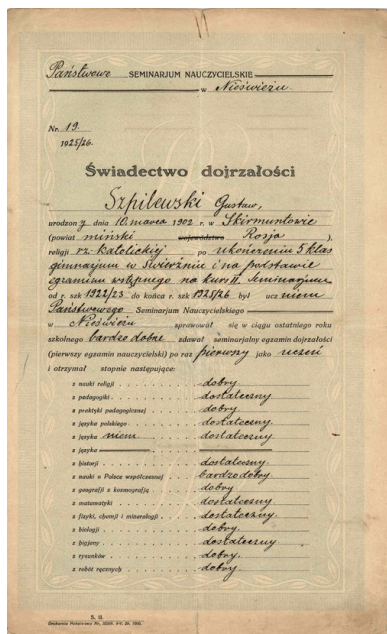 Państwowe SEMINARJUM NAUCZYCIELSKIE
w Nieświeżu.
Nr. 19.
1925/26.
Świadectwo dojrzałości
Szpilewski Gustaw,
urodzony dnia 10. marca 1902 r. w Skirmuntowie
(powiat miński województwo Rosja ).
religji rz.-katolickiej po ukończeniu 5 klas
gimnazjum w Świerżniu i na podstawie
egzaminu wstępnego na kurs II. Seminarjum
od r. szk 1922/23 do końca r. szk 1925/26 był uczniem
Państwowego Seminarjum Nauczycielskiego
w Nieświeżu sprawował się w ciągu ostatniego roku
szkolnego bardzo dobrze zdawał seminarjalny egzamin dojrzałości
(pierwszy egzamin nauczycielski) po raz pierwszy jako uczeń
i otrzymał stopnie następujące:
z nauki religji dobry
z pedagogiki dostateczny
z praktyki pedagogicznej dobry
z języka polskiego dostateczny.
z języka niem. dostateczny
z języka
z historji dostateczny.
z nauki o Polsce współczesnej bardzo dobry.
z geografji z kosmografją dobry
z matematyki dostateczny
z fizyki, chemji i mineralogji dostateczny.
z biologji dobry.
z higjeny dostateczny
z rysunków dobry.
z robót ręcznych dobry.
S. II.